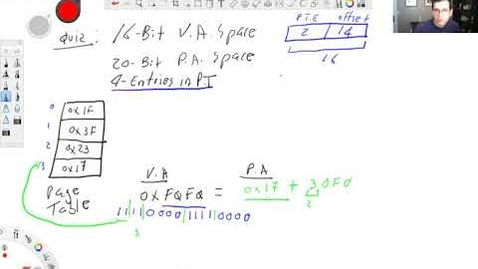 QUIZ: 16-Bit V.A Space
20-Bit P.A. Space
4-Entries in P.T
P.T.E offset
2 14
16
0 0x1F
1 0x3F
2 0x23
3 0x17
Page
Table
V.A P.A
0xF0F0 = 0x17 + 30F0
1111000011110000
3 2